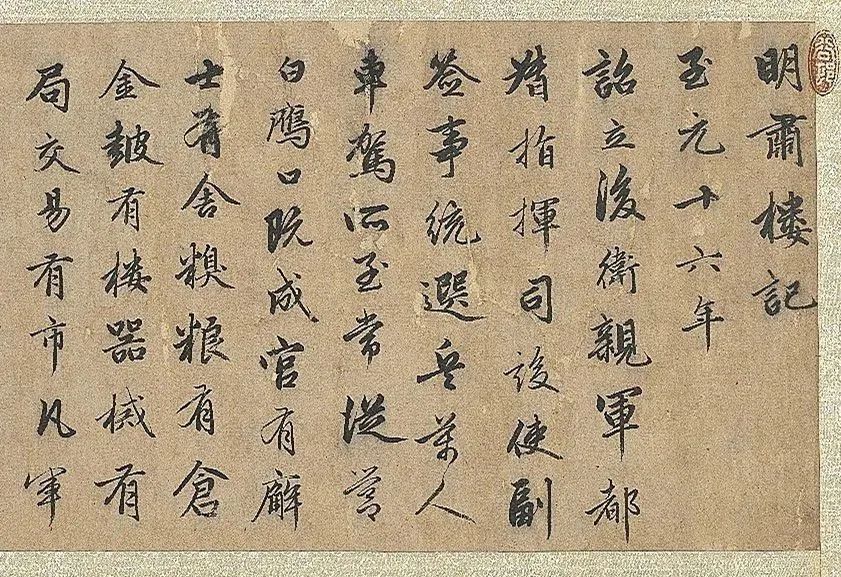 明肅楼記
至元十六年
詔立後衛親軍都
指揮司設使副
签事統選兵萬人
車駕所至常從營
白鴈口既成官有廨
士有舍糗粮有倉
金鼓有楼器械有
局交易有市凡軍